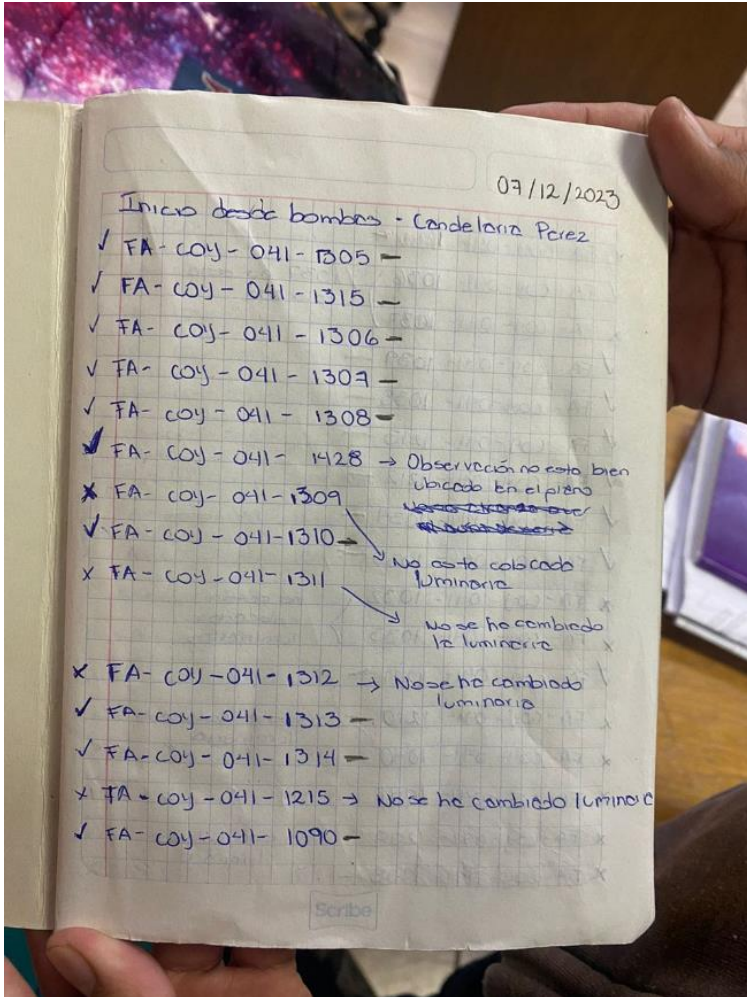 07/12/2023
Inicio desde bombas - Candelaria Perez
✓ FA-COY-041-1305 –
✓ FA-COY-041-1315 –
✓ FA-COY-041-1306 –
✓ FA-COY-041-1307 –
✓ FA-COY-041-1308 –
✓ FA-COY-041-1428 → Observación no esta bien
ubicado en el plano
x FA-COY-041-1309
✓ FA-COY-041-1310 –
No esta colocado
luminaria
x FA-COY-041-1311
No se ha cambiado
la luminaria
x FA-COY-041-1312 → No se ha cambiado
luminaria
✓ FA-COY-041-1313 –
✓ FA-COY-041-1314 –
x FA-COY-041-1215 → No se ha cambiado luminaria
✓ FA-COY-041-1090 –
Scribe